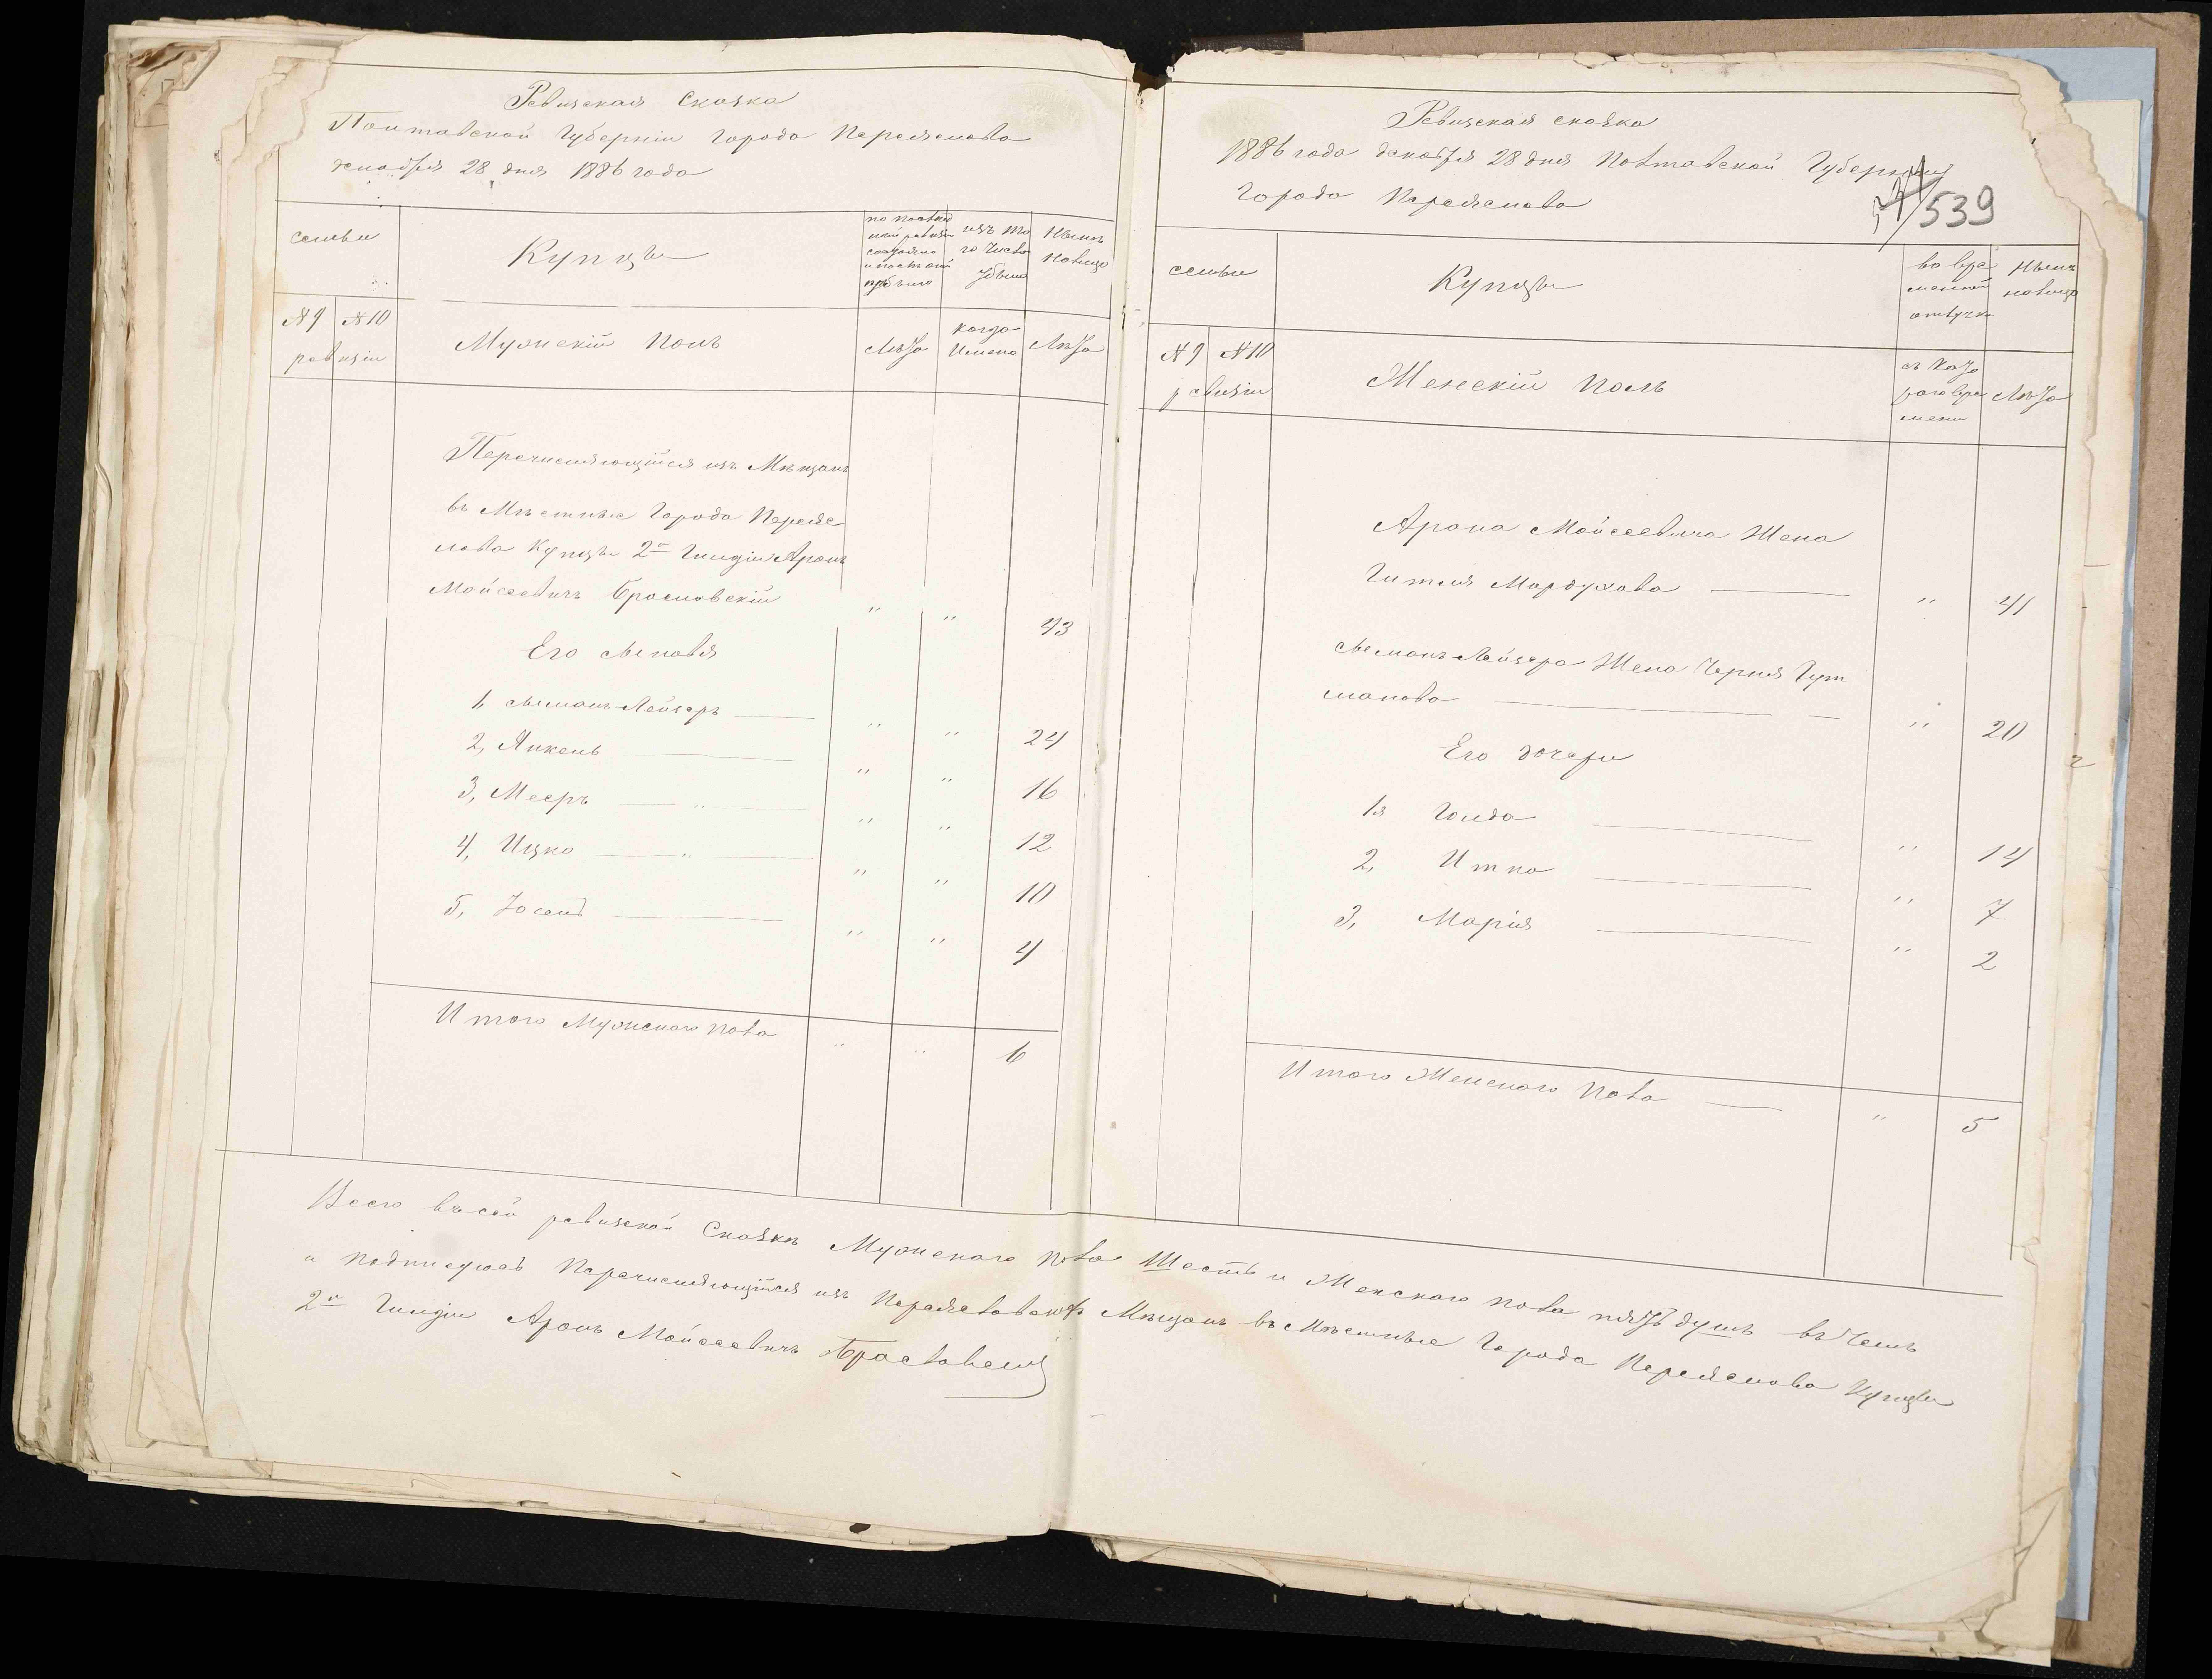 Ревизская Сказка
Полтавской Губерніи Города Переяслова
декабря 28 дня 1886 года
семьи
Купцы
по послѣд
ней ревизіи
состояло
и послѣ оной
прибыло
изъ то
го числа
убыло
Нынѣ
налицо
№ 9 № 10
ревизіи
Мужскій Полъ
Лѣта
когда
Именно
Лѣта
Перечисляющійся изъ Мѣщанъ
въ Мѣстные Города Переяс
лова Купцы 2й Гильдіи Аронъ
Мойсеевичъ Браславскій " " 43
Его сыновья
1, Шлиома-Лейзеръ " " 24
2, Янкель " " 16
3, Мееръ " " " 12
4, Ицко " " " 10
5, Іосель " " 4
Итого Мужскаго пола " " 6
Ревизская сказка
1886 года декабря 28 дня Полтавской Губерніи
Города Переяслова
539
семьи
Купцы
во вре
менной
отлучкѣ
Нынѣ
налицо
№ 9 № 10
ревизіи
Женскій полъ
съ кото
раго вре
мени
Лѣта
Арона Мойсеевича Жена
Гитля Мордухова " 41
Лейзера Жена Черня Гут
манова " 20
Его дочери
1я Голда " 14
2, Итка " 7
3, Марія " 2
Итого Женскаго Пола " 5
Всего въ сей ревизской Сказкѣ Мужскаго пола Шесть и Женскаго пола пять душъ въ чемъ
и подписуюсь Перечисляющійся изъ Переясловскихъ Мѣщанъ въ Мѣстные Города Переяслова Купцы
2й Гильдіи Аронъ Мойсеевичъ Браславскій